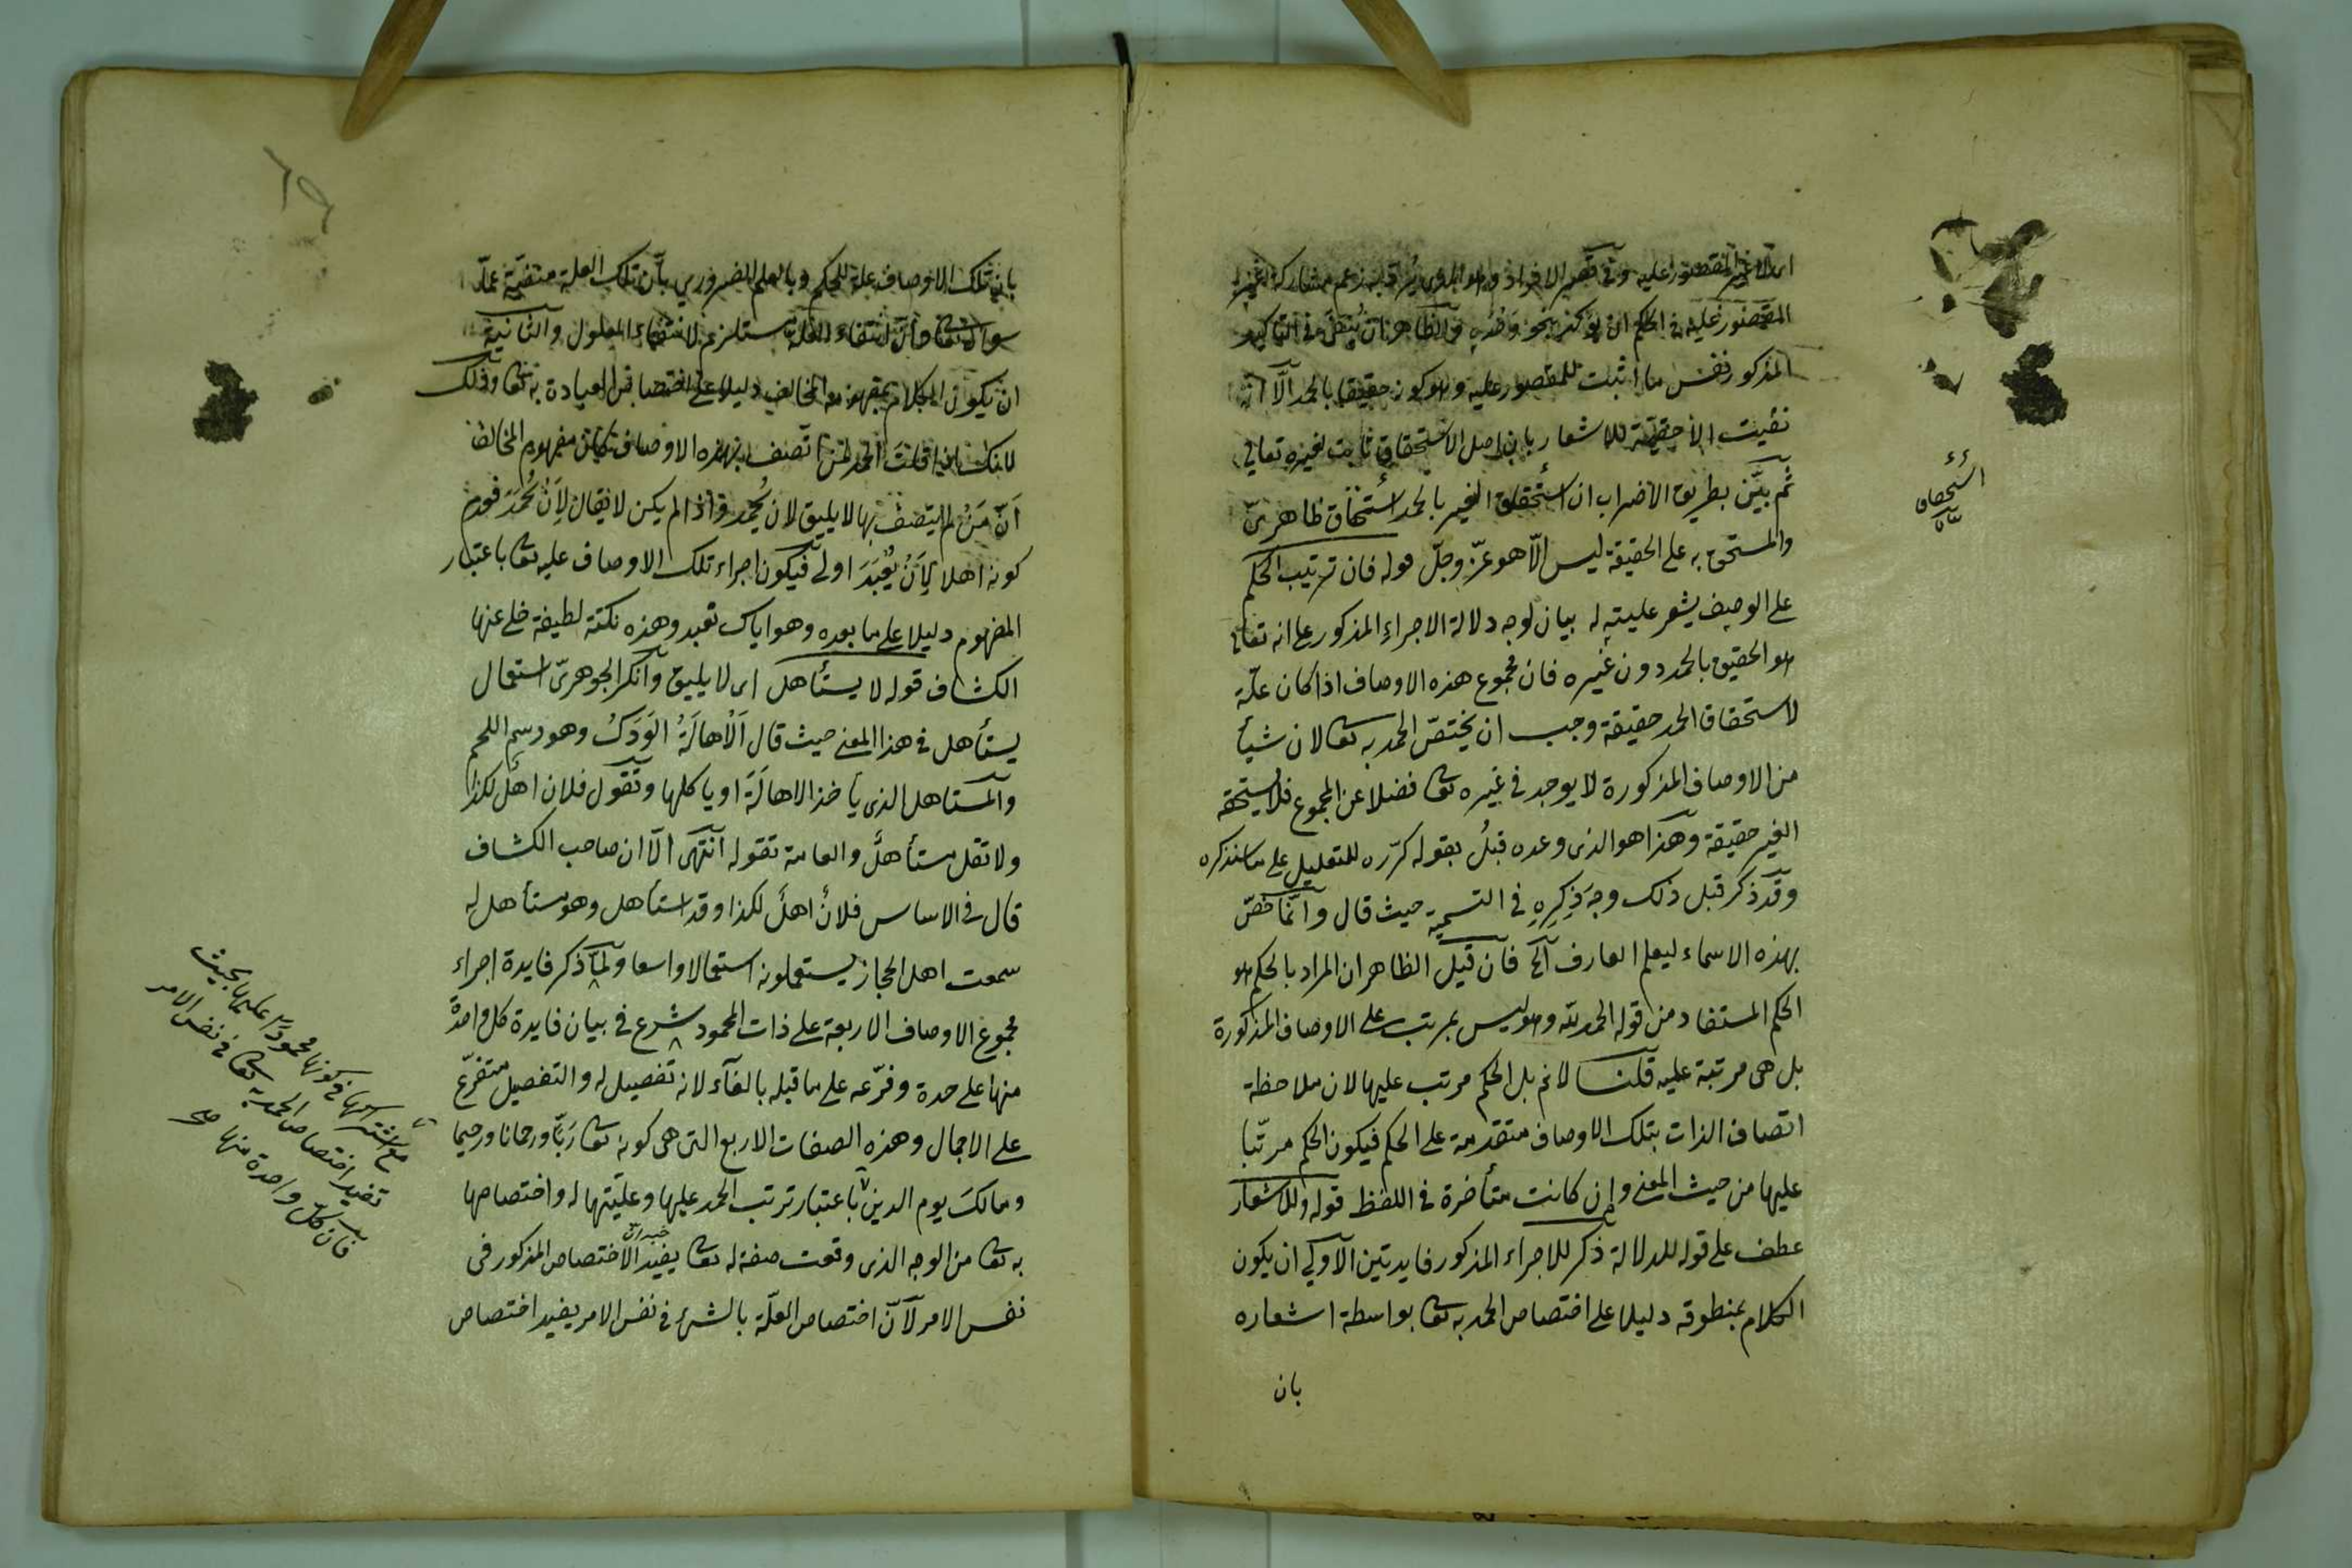 المقصور عليه وفي قصر الافراد
المقصور عليه في الحكم ان يؤكد بنحو وحده والظاهر ان في التأكيد
المذكور نفس ما اثبت للمقصور عليه وهو كونه حقيقا بالحمد الا انه
نفيت الأحقية للاشعار بان اصل الاستحقاق ثابت لغيره تعالى
ثم بيّن بطريق الاضراب ان استحقاق الغير بالحمد استحقاق ظاهريّ
والمستحق به على الحقيقة ليس الّا هو عزّ وجلّ قوله فان ترتيب الحكم
على الوصف يشعر بعليته له بيان لوجه دلالة الاجراء المذكور على انه تعالى
هو الحقيق بالحمد دون غيره فان مجموع هذه الاوصاف اذا كان علّة
لاستحقاق الحمد حقيقة وجب ان يختصّ الحمد به تعا لان شيأ
من الاوصاف المذكورة لا يوجد في غيره تعا فضلا عن المجموع فلا يستحقه
الغير حقيقة وهذا هو الذى وعده قبلُ بقوله كرّره للتعليل على ما سنذكره
وقد ذكر قبل ذلك وجه ذِكرِهِ في التسمية حيث قال وانّما خصّ
بهذه الاسماء ليعلم العارف الخ فان قيل الظاهر ان المراد بالحكم هو
الحكم المستفاد من قوله الحمد لله وهو ليس بمرتب على الاوصاف المذكورة
بل هى مرتبة عليه قلنا لانم بل الحكم مرتب عليها لان ملاحظة
اتصاف الذات بتلك الاوصاف متقدمة على الحكم فيكون الحكم مرتّبا
عليها من حيث المعنى وان كانت متأخرة في اللفظ قوله وللاشعار
عطف على قوله للدلالة ذكر للاجراء المذكور فايدتين الاولى ان يكون
الكلام بمنطوقه دليلا على اختصاص الحمد به تعا بواسطة اشعاره
بان
استحقاق
بان تلك الاوصاف علة للحكم وبالعلم الضروري بأن تلك العلة منتفية عمّا
سواه تعا وأن انتفاء العلة مستلزم لانتفاء المعلول والثانية
ان يكون الكلام بمفهومه المخالف دليلا على اختصاص العبادة به تعا وذلك
لانك اذا قلت الحمد لمن اتصف بهذه الاوصاف كان مفهومه المخالف
أنّ مَن لم يتصف بها لا يليق لان يُحمد واذا لم يكن لايقا لِأَن يُحمَدَ فعدم
كونه اهلا لِأَنْ يُعْبَدَ اولى فيكون اجراء تلك الاوصاف عليه تعا باعتبار
المفهوم دليلا على ما بعده وهو اياك نعبد وهذه نكتة لطيفة خلى عنها
الكشاف قوله لا يستأهل اى لا يليق وانكر الجوهريّ استعمال
يستأهل في هذا المعنى حيث قال اَلْاهالَةُ الوَدَكُ وهو دسم اللحم
والمستاهل الذى يأخذ الاهالَة او يأكلها وتقول فلان اهلٌ لكذا
ولا تقل مستأهلٌ والعامة تقوله انتهى الّا ان صاحب الكشاف
قال في الاساس فلانٌ اهلٌ لكذا وقد استأهل وهو مستأهل له
سمعت اهل الحجاز يستعملونه استعمالا واسعا ولمّا ذكر فايدة اجراء
مجموع الاوصاف الاربعة على ذات المحمود شرع في بيان فايدة كل واحدة
منها على حدة وفرّعه على ما قبله بالفاء لانه تفصيل له والتفصيل متفرّع
على الاجمال وهذه الصفات الاربع التى هى كونه تعا رَبًّا ورحمانا ورحيما
ومالكَ يوم الدين باعتبار ترتب الحمد عليها وعليّتها له واختصاصها
به تعا من الوجه الذى وقعت صفة له تعا يفيد الاختصاص المذكور في
خبر ان
نفس الامر لأنّ اختصاص العلّة بالشئ في نفس الامر يفيد اختصاص
مع اشتراكها في كونها محمودا عليها بحيث
تفيد اختصاص الحمد به تعا في نفس الامر
فان كل واحدة منها صح